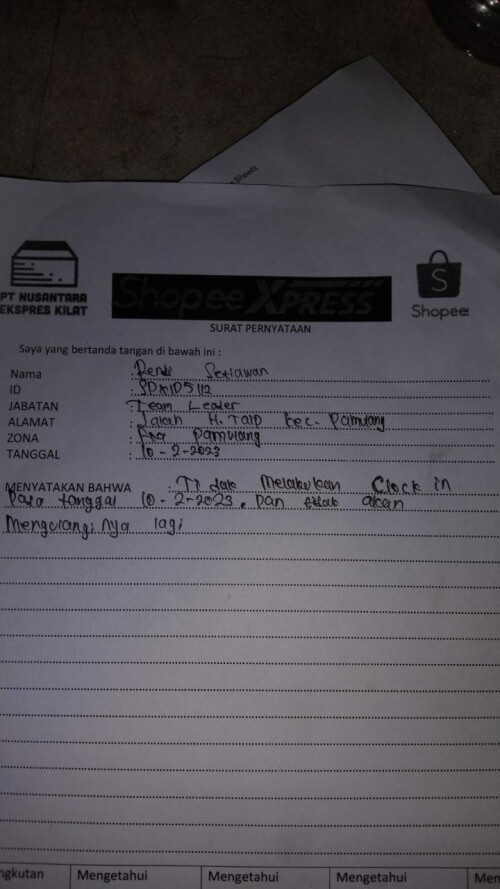 Sheets
PT NUSANTARA
EKSPRES KILAT
Shopee XPRESS
S
Shopee
SURAT PERNYATAAN
Saya yang bertanda tangan di bawah ini :
Nama : Rendi Setiawan
ID
JABATAN : Team Leader
ALAMAT : Jalan H. Taip kec. Pamulang
ZONA : Pamulang
TANGGAL : 10-2-2023
MENYATAKAN BAHWA : Tidak Melakukan Clock in
Pada tanggal 10-2-2023. Dan tidak akan
Mengulangi nya lagi
ngkutan Mengetahui Mengetahui Mengetahui Men